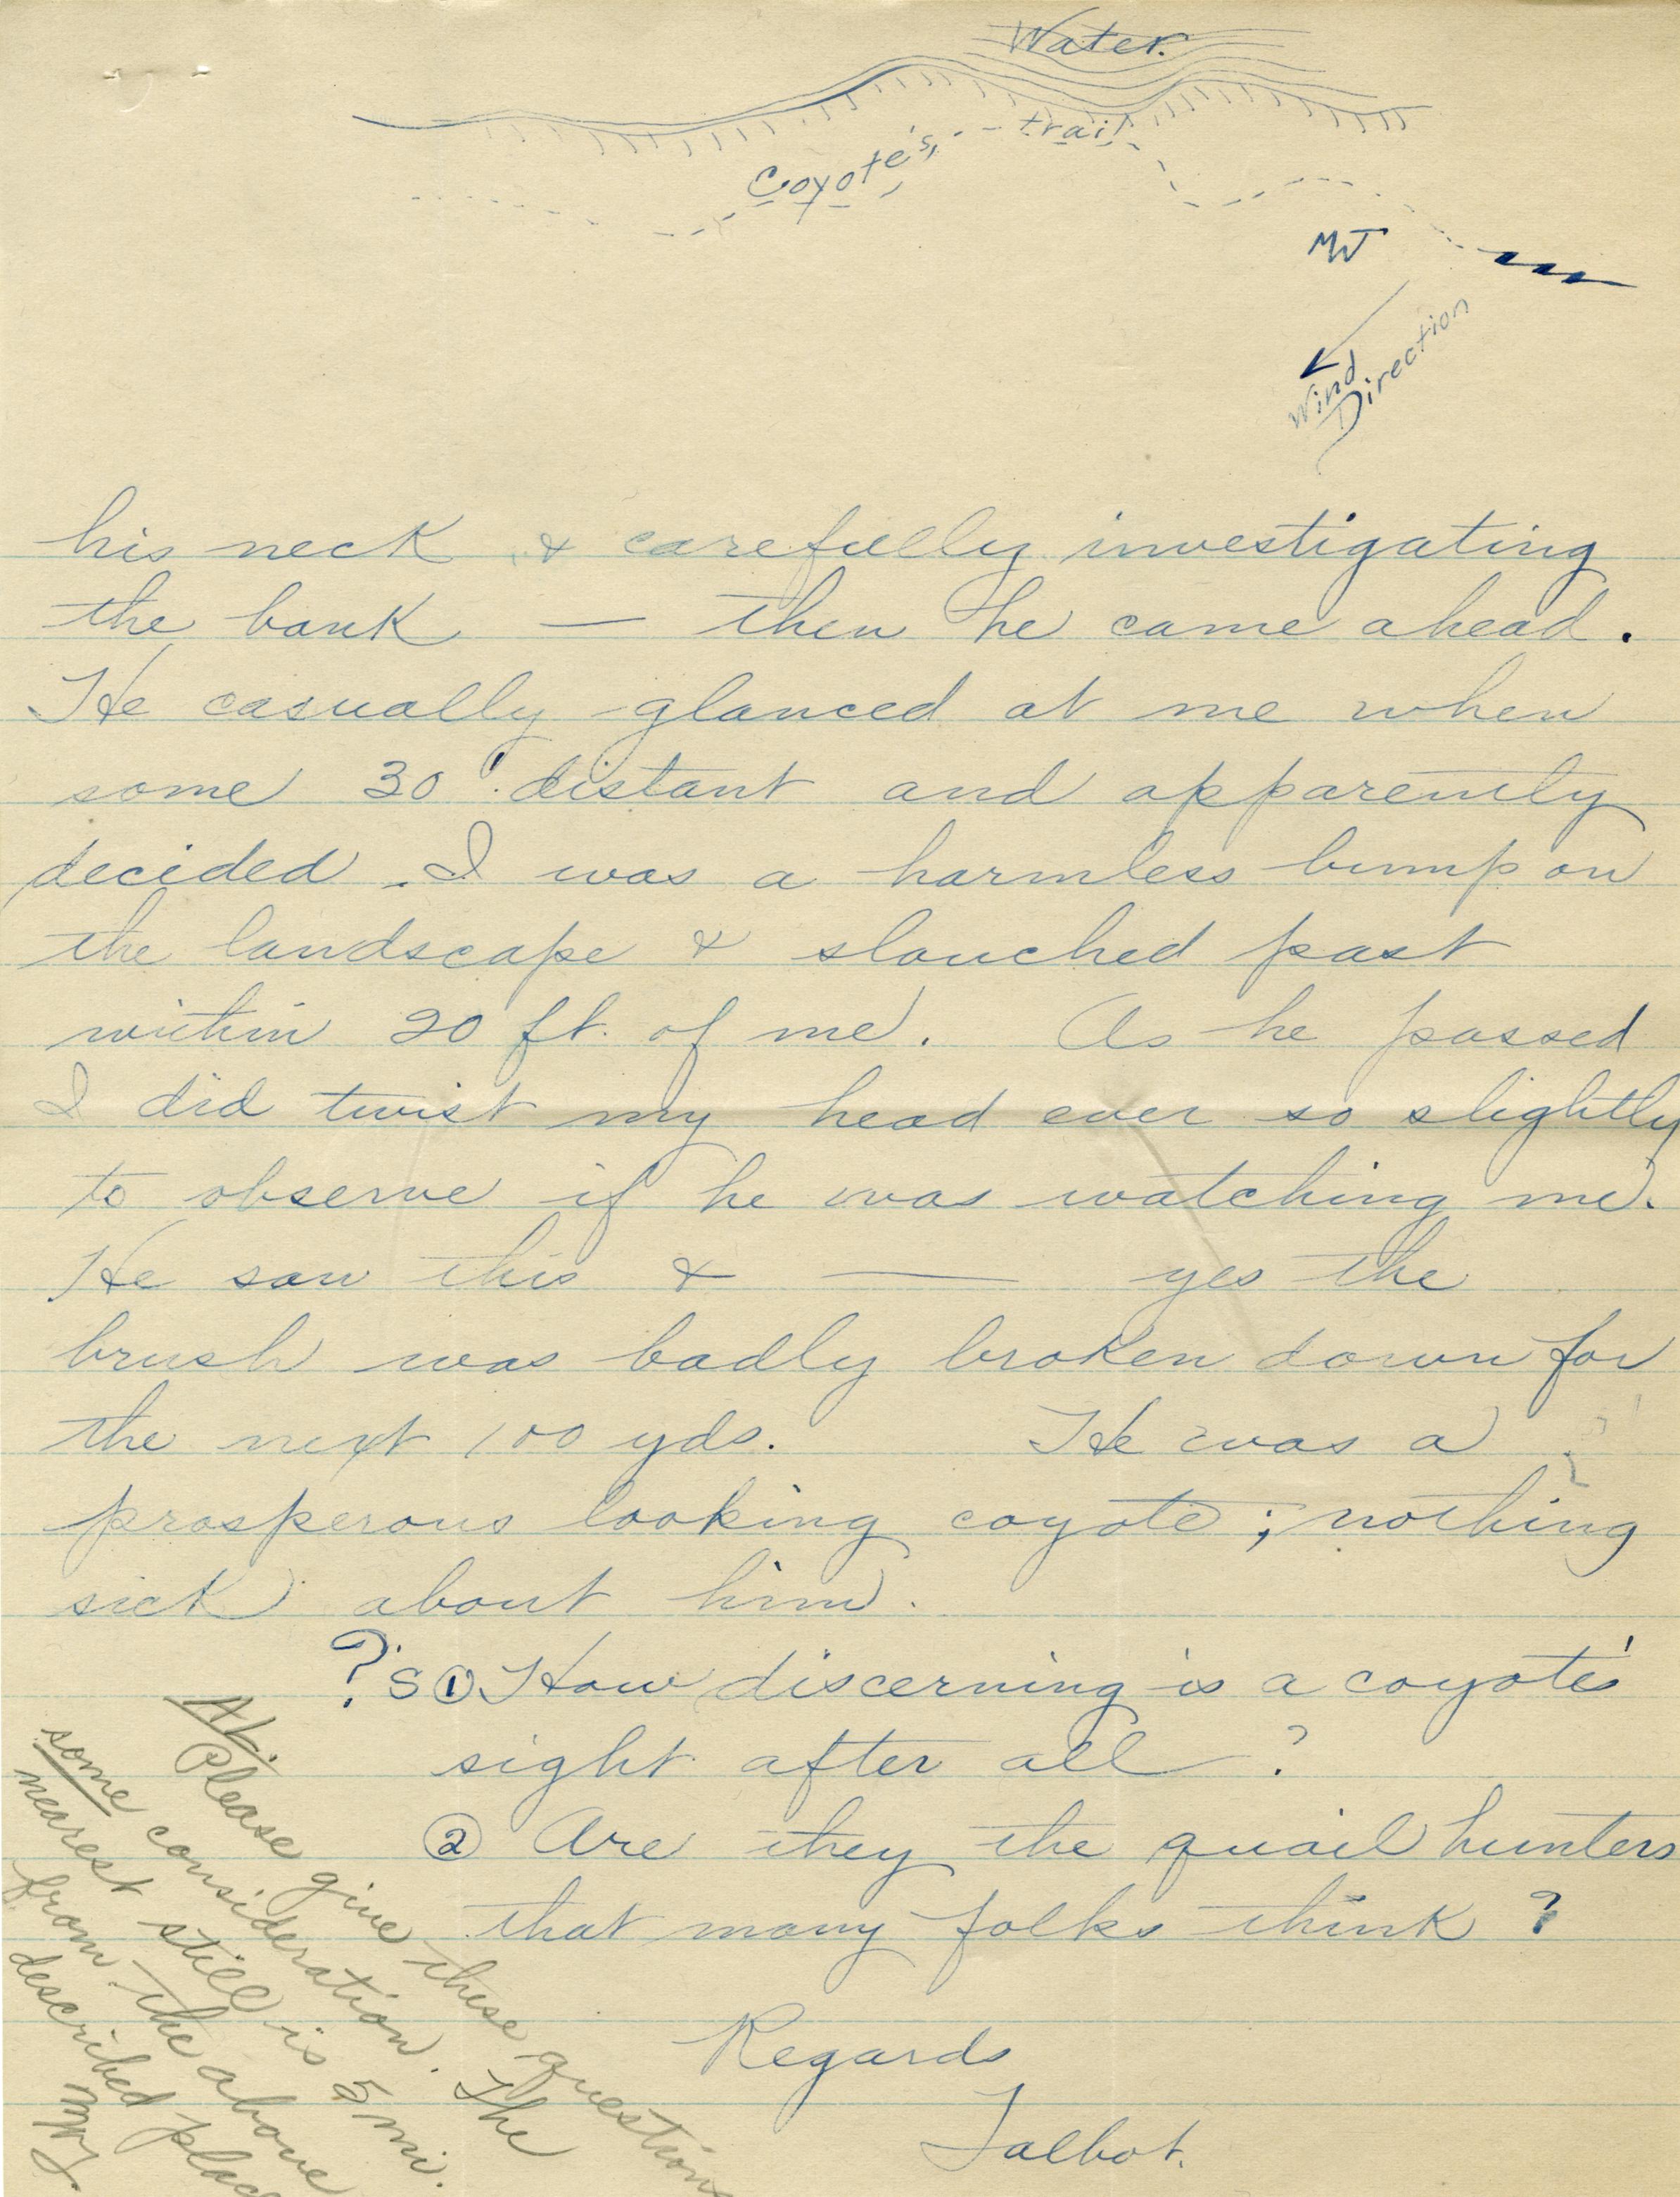 Water.
Coyote's trail
MWT
Wind
Direction
his neck & carefully investigating
the bank — then he came ahead.
He casually glanced at me when
some 30' distant and apparently
decided I was a harmless bump on
the landscape & slouched past
within 20 ft. of me. As he passed
I did twist my head ever so slightly
to observe if he was watching me.
He saw this & — yes the
brush was badly broken down for
the next 100 yds. He was a
prosperous looking coyote; nothing
sick about him.
?'s ① How discerning is a coyote's
sight after all?
② Are they the quail hunters
that many folks think?
Regards
Talbot.
Please give these questions
some consideration. The
nearest still is 5 mi.
from the above
described place